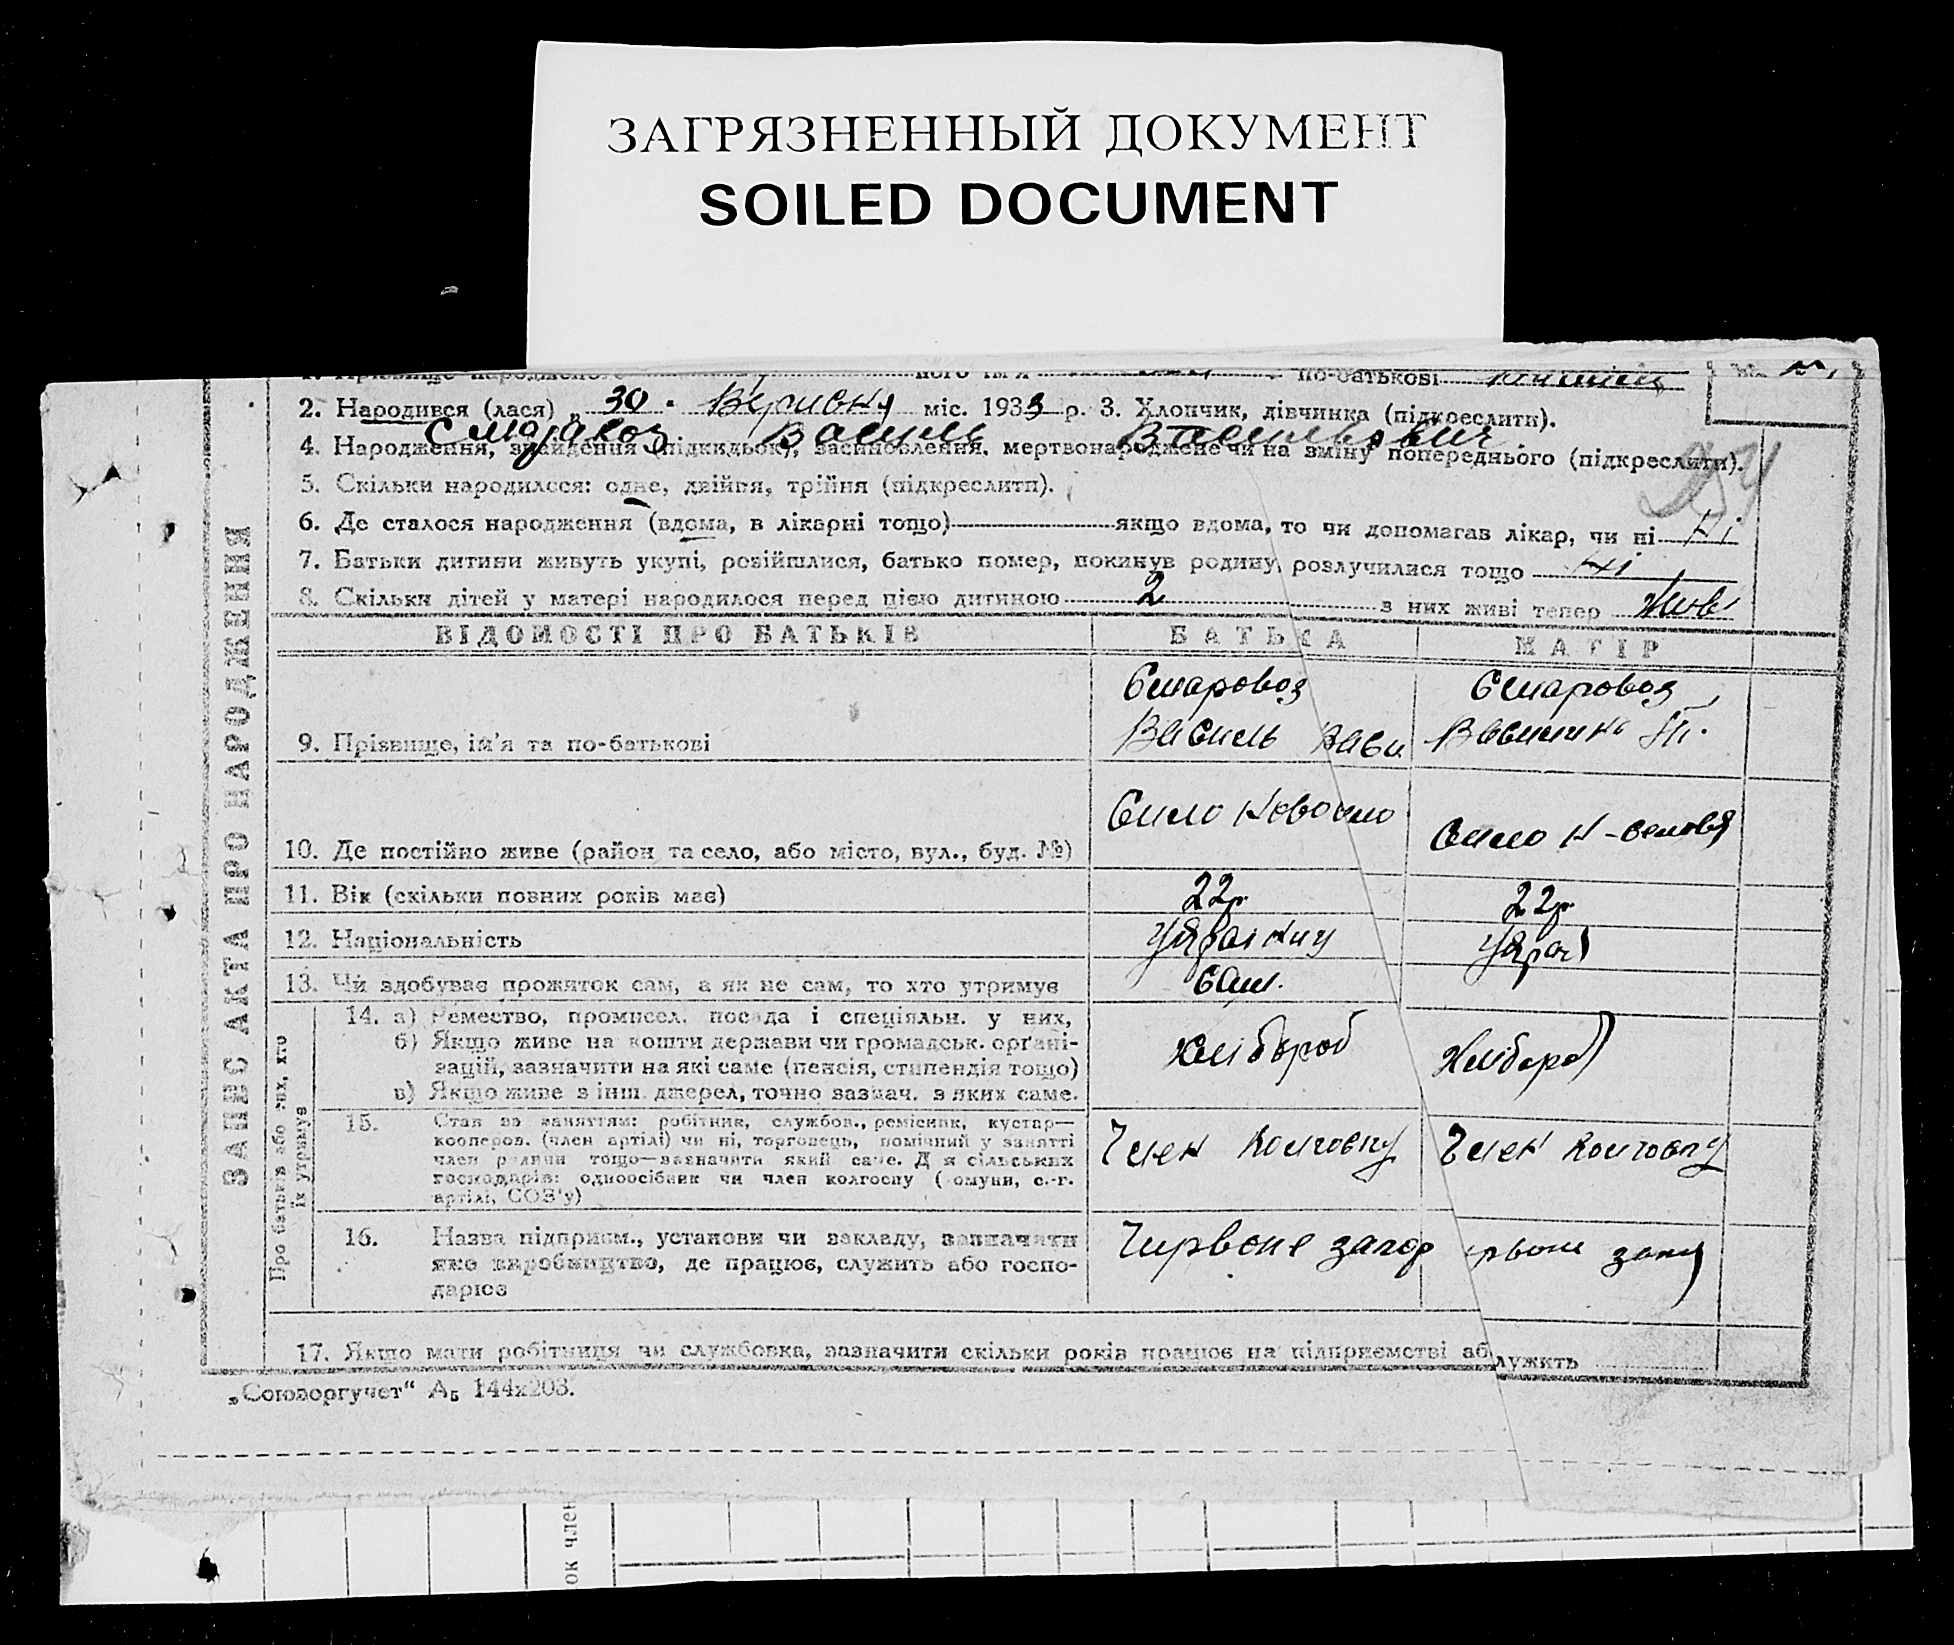 ЗАГРЯЗНЕННЫЙ ДОКУМЕНТ
SOILED DOCUMENT
1. Прізвище народженого ного ім'я по-батькові
2. Народився (лася) „ 30 " Вересня міс. 1933 р. 3. Хлопчик, дівчинка (підкреслити).
Василь Васильович
4. Народження, знайдення (підкидьок), засиновлення, мертвонароджене чи на зміну попереднього (підкреслити).
5. Скільки народилося: одне, двійня, трійня (підкреслити).
6. Де сталося народження (вдома, в лікарні тощо) якщо вдома, то чи допомагав лікар, чи ні Ні
7. Батьки дитини живуть укупі, розійшлися, батько помер, покинув родину, розлучилися тощо Ні
8. Скільки дітей у матері народилося перед цією дитиною 2 з них живі тепер Живі
ЗАПИС АКТА ПРО НАРОДЖЕННЯ
ВІДОМОСТІ ПРО БАТЬКІВ БАТЬКА МАТІР
9. Прізвище, ім'я та по-батькові
Старовоз
Василь Васи
Старовоз
10. Де постійно живе (район та село, або місто, вул., буд. №)
Село
Село
11. Вік (скільки повних років має) 22р. 22р.
12. Національність Українц Укра
13. Чи здобуває прожиток сам, а як не сам, то хто утримує сам.
Про батьків або тих, хто
їх утримує
14. а) Ремество, промисел. посада і спеціяльн. у них,
б) Якщо живе на кошти держави чи громадськ. орґані-
зацій, зазначити на які саме (пенсія, стипендія тощо)
в) Якщо живе з інш. джерел, точно зазнач. з яких саме.
хлібороб Хлібороб
15. Став за заняттям: робітник, службов., ремісник, кустар—
кооперов. (член артілі) чи ні, торговець, помічний у занятті
член родини тощо—зазначити який саме. Для сільських
господарів: одноосібник чи член колгоспу (комуни, с.-г.
артілі, СОЗ'у)
Член колгоспу Член колгоспу
16. Назва підприєм., установи чи закладу, зазначити
яке виробництво, де працює, служить або госпо-
дарює
Червоне запор рвоне запо
17. Якщо мати робітниця чи службовка, зазначити скільки років працює на підприємстві аб лужить
„Союзоргучет“ А5 144х203.
ок член